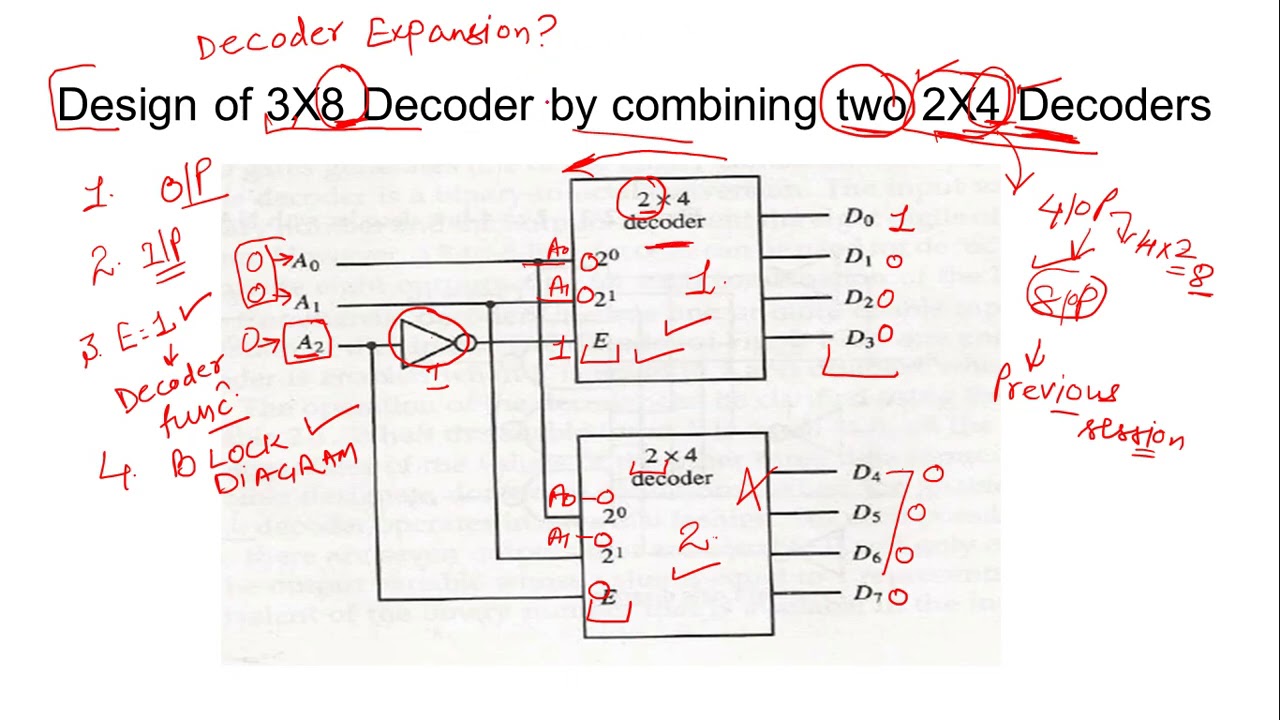 Decoder Expansion?
Design of 3X8 Decoder by combining two 2X4 Decoders
1. O/P
2. I/P
3. E=1
Decoder
func^n
4. BLOCK
DIAGRAM
0 A0
0 A1
0 A2
1
2 × 4
decoder
A0 0 2^0
A1 0 2^1
1 E
1.
D0 1
D1 0
D2 0
D3 0
2 × 4
decoder
A0-0
2^0
A1-0
2^1
0
E
2.
D4 0
D5 0
D6 0
D7 0
4 O/P
4×2
=8
8 O/P
Previous
session